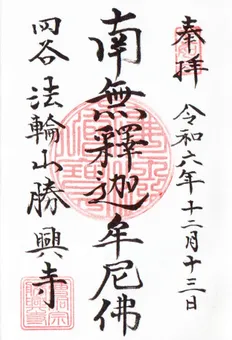 奉拝
令和六年十二月十三日
南無釋迦牟尼佛
四谷
法輪山勝興寺